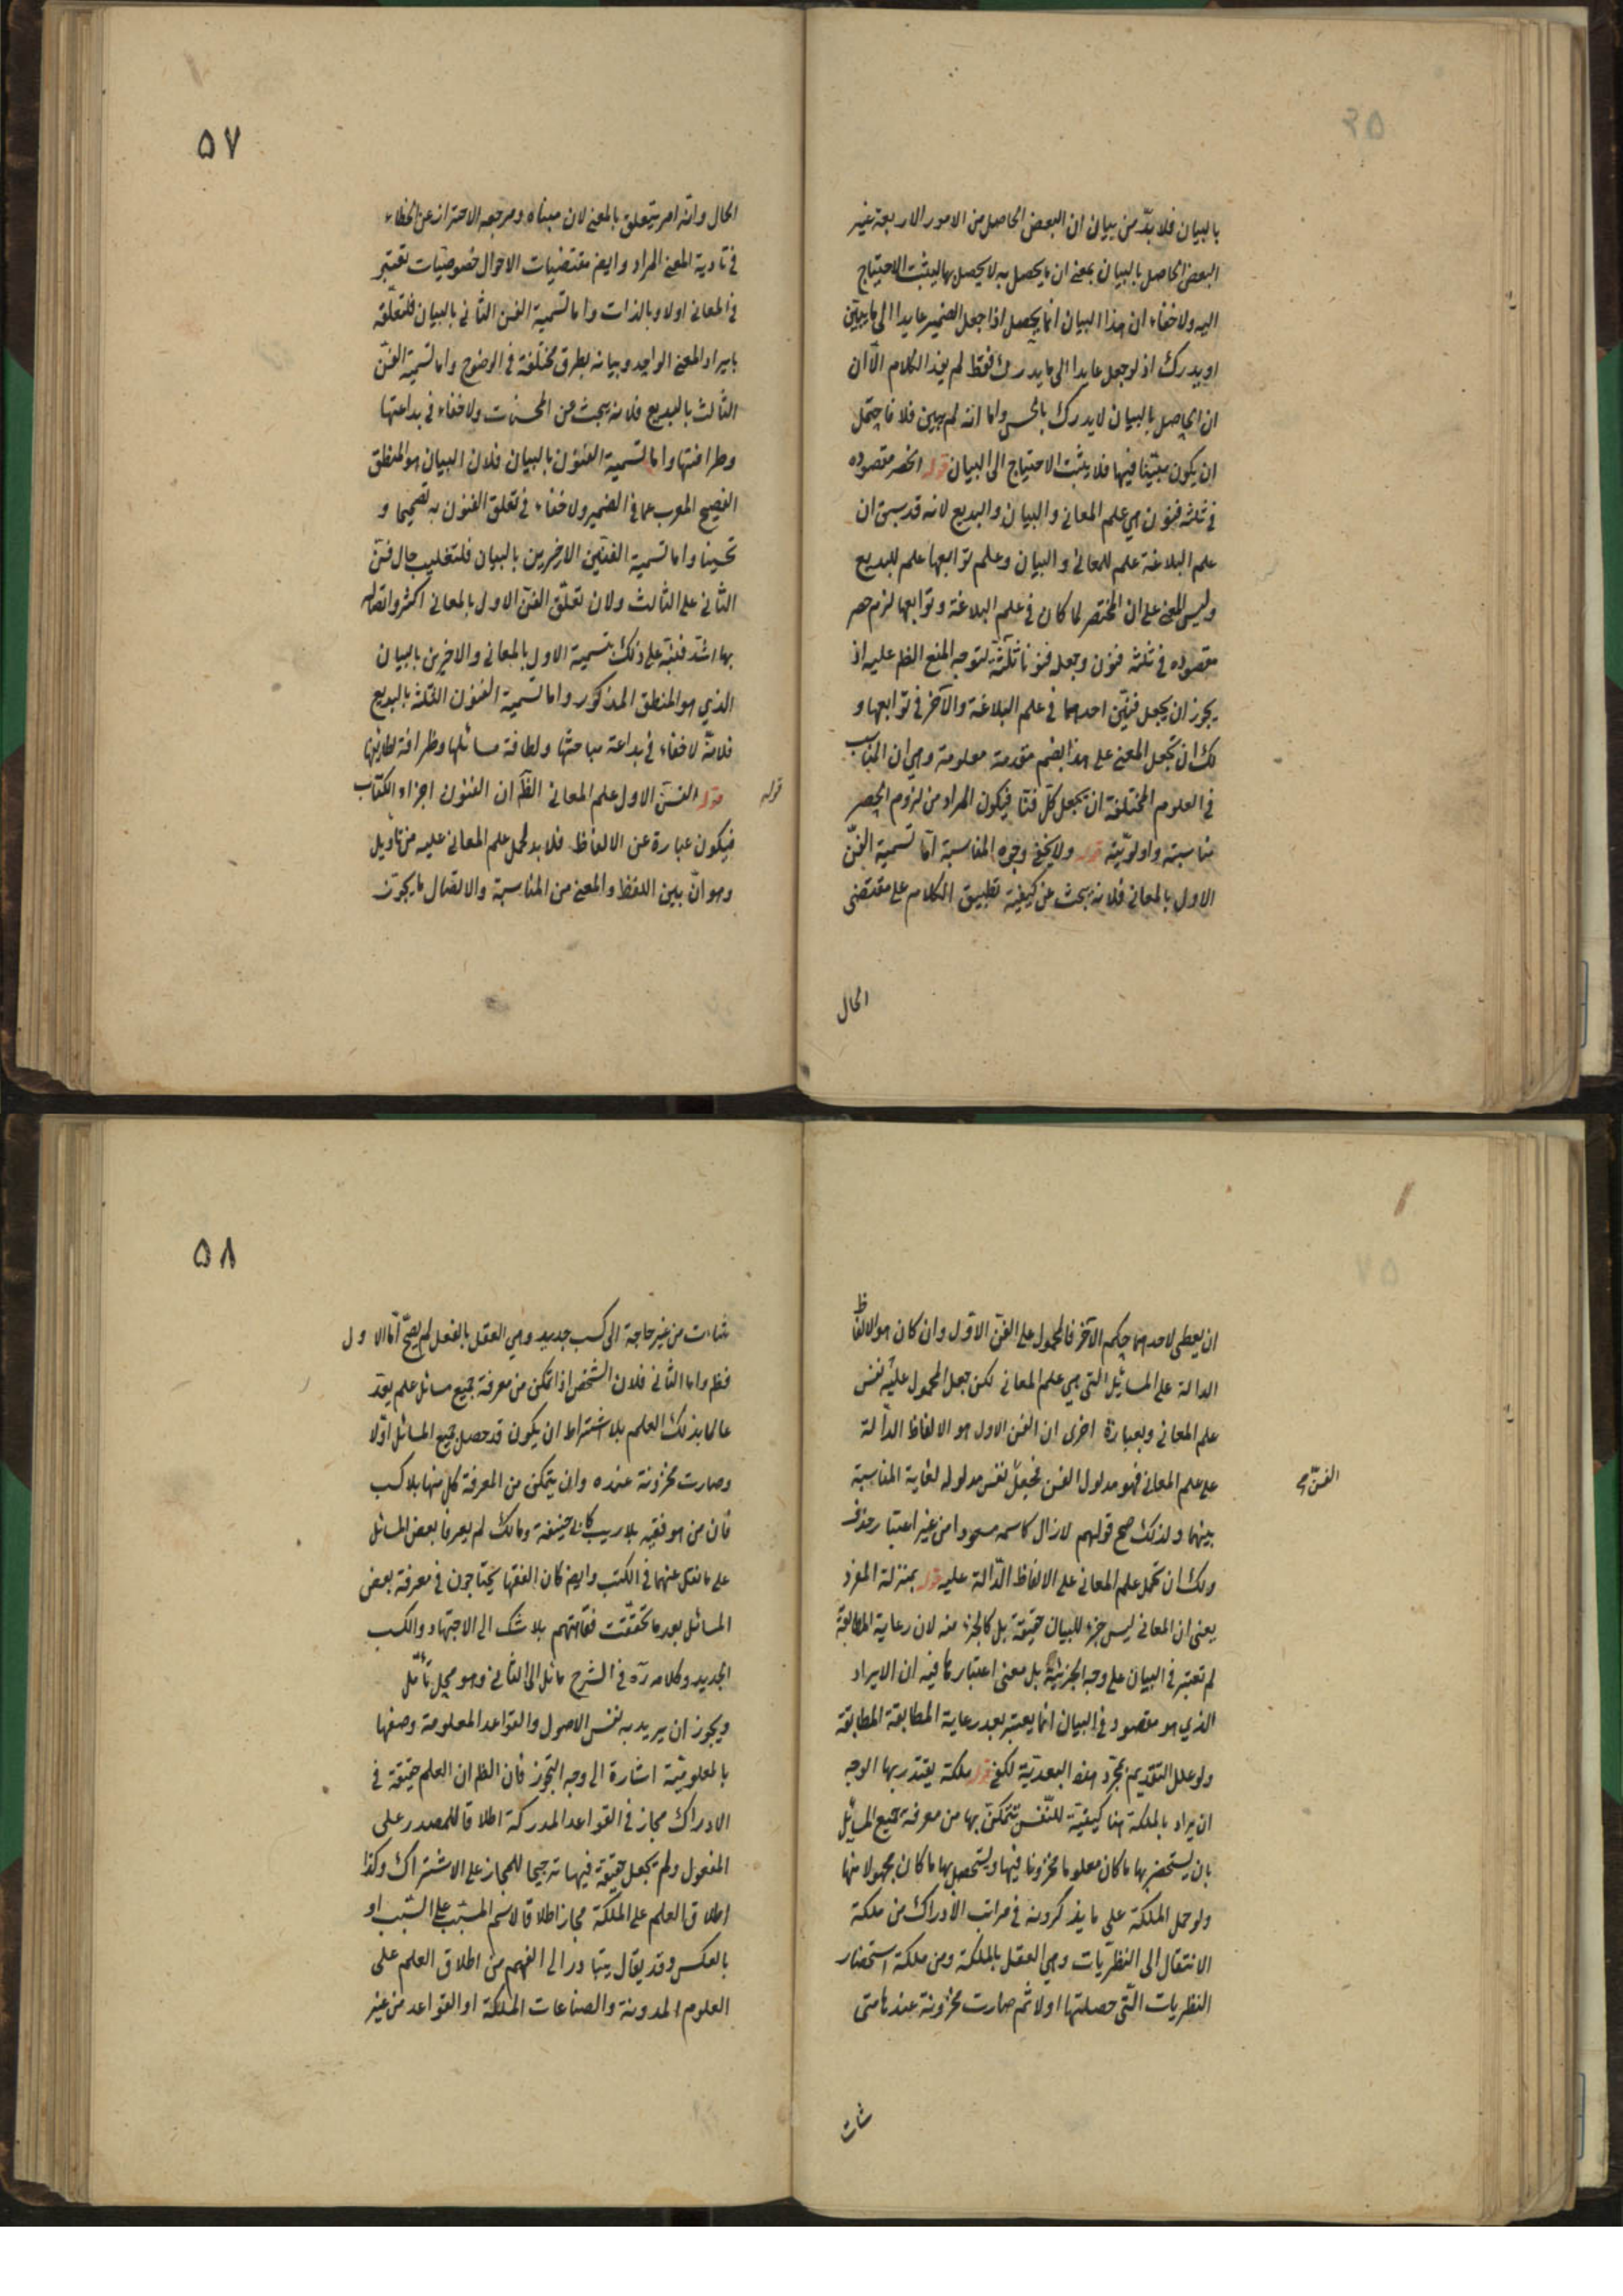 بالبيان فلا بدّ من بيان ان البعض الحاصل من الامور الاربعة غير
البعض الحاصل بالبيان بمعنى ان ما يحصل به لا يحصل بها ليثبت الاحتياج
اليه ولا خفاء ان هذا البيان انما يحصل اذا جعل الضمير عايدا الى ما يبين
او يدرك اذ لو جعل عايدا الى ما يدرك فقط لم يفد الكلام الّا ان
ان الحاصل بالبيان لا يدرك بالحس واما انه لم يبين فلا فاحتمل
ان يكون مبيّنا فيها فلا يثبت الاحتياج الى البيان قوله انحصر مقصوده
في ثلثة فنون هي علم المعاني والبيان والبديع لانه قد سبق ان
علم البلاغة علم للمعاني والبيان وعلم توابعها علم للبديع
وليس المعنى على ان المختصر لما كان في علم البلاغة وتوابعها لزم حصر
مقصوده في ثلثة فنون وجعله فنونا ثلثة لتوجه المنع الظ عليه اذ
يجوز ان يجعل فنين احدهما في علم البلاغة والآخر في توابعها و
لك ان تجعل المعنى على هذا بضم مقدمة معلومة وهي ان المناسب
في العلوم المختلفة ان يجعل كل فنا فيكون المراد من لزوم الحصر
مناسبته واولويته قوله ولا يخفى وجوه المناسبة امّا تسمية الفنّ
الاول بالمعاني فلانه يبحث عن كيفية تطبيق الكلام على مقتضى
الحال
٥٧
الحال وانه امر يتعلق بالمعنى لان مبناه ومرجعه الاحتراز عن الخطاء
في تادية المعنى المراد وايض مقتضيات الاحوال خصوصيات تعتبر
في المعاني اولا وبالذات واما تسمية الفن الثاني بالبيان فلتعلّقه
بايراد المعنى الواحد وبيانه بطرق مختلفة في الوضوح واما تسمية الفن
الثالث بالبديع فلانه يبحث عن المحسنات ولا خفاء في بداعتها
وظرافتها واما تسمية الفنون بالبيان فلان البيان هو المنطق
الفصيح المعرب عما في الضمير ولا خفاء في تعلق الفنون به تصحيحا و
تحسينا واما تسمية الفنّين الاخيرين بالبيان فلتغليب حال فنّ
الثاني على الثالث ولان تعلّق الفنّ الاول بالمعاني اكثر واتصاله
بها اشدّ فنبّه على ذلك بتسمية الاول بالمعاني والاخيرين بالبيان
الذي هو المنطق المذكور واما تسمية الفنون الثلثة بالبديع
فلانّه لا خفاء في بداعة مباحثها ولطافة مسائلها وظرافة لطائفها
قوله
قوله الفنّ الاول علم المعاني الظّ ان الفنون اجزاء الكتاب
فيكون عبارة عن الالفاظ فلا بد لحمل علم المعاني عليه من تاويل
وهو انّ بين اللفظ والمعنى من المناسبة والاتصال ما يجوّز
ان يعطى لاحدهما حكم الآخر فالمحمول على الفنّ الاوّل وان كان هو الالفاظ
الدالة على المسائل التي هي علم المعاني لكن جعل المحمول عليه نفس
علم المعاني وبعبارة اخرى ان الفن الاول هو الالفاظ الدالة
على علم المعاني فهو مدلول الفن فجعل نفس مدلوله لغاية المناسبة
الفنّ صح
بينهما ولذلك صح قولهم لا زال كاسمه مسعودا من غير اعتبار حذف
ولك ان تحمل علم المعاني على الالفاظ الدّالة عليه قوله بمنزلة المفرد
يعني ان المعاني ليس جزء للبيان حقيقة بل كالجزء منه لان رعاية المطابقة
لم تعتبر في البيان على وجه الجزئية بل معنى اعتبارها فيه ان الايراد
الذي هو مقصود في البيان انما يعتبر بعد رعاية المطابقة المطابقة
ولو علل التقديم بمجرد هذه البعديّة لكفى قوله ملكة يقتدر بها الوجه
ان يراد بالملكة هنا كيفيّة للنّفس تتمكّن بها من معرفة جميع المسائل
بان يستحضر بها ما كان معلوما مخزونا فيها ويستحصل بها ما كان مجهولا منها
ولو حمل الملكة على ما يذكرونه في مراتب الادراك من ملكة
الانتقال الى النظريّات وهي العقل بالملكة ومن ملكة استحضار
النظريات الّتي حصلتها اولا ثم صارت مخزونة عندها متى
شاءت
٥٨
شاءت من غير حاجة الى كسب جديد وهي العقل بالفعل لم يصحّ امّا الاول
فظ واما الثاني فلان الشخص اذا تمكن من معرفة جميع مسائل علم يعدّ
عالما بذلك العلم بلا اشتراط ان يكون قد حصل جميع المسائل اوّلا
وصارت مخزونة عنده وان يتمكن من المعرفة كل منها بلا كسب
فان من هو فقيه بلا ريب كابي حنيفة ومالك لم يعرفا بعض المسائل
على ما نقل عنهما في الكتب وايض كان الفقها يحتاجون في معرفة بعض
المسائل بعد ما تحققّت فقاهتهم بلا شك الى الاجتهاد والكسب
الجديد وكلامه ره في الشرح مائل الى الثاني وهو محل تأمّل
ويجوز ان يريد به نفس الاصول والقواعد المعلومة وصفها
بالمعلوميّة اشارة الى وجه التجوز فان الظ ان العلم حقيقة في
الادراك مجاز في القواعد المدركة اطلاقا للمصدر على
المفعول ولم يجعل حقيقة فيها ترجيحا للمجاز على الاشتراك وكذا
اطلاق العلم على الملكة مجاز اطلاقا لاسم المسبب على السبب او
بالعكس وقد يقال يتبادر الى الفهم من اطلاق العلم على
العلوم المدونة والصناعات الملكة او القواعد من غير